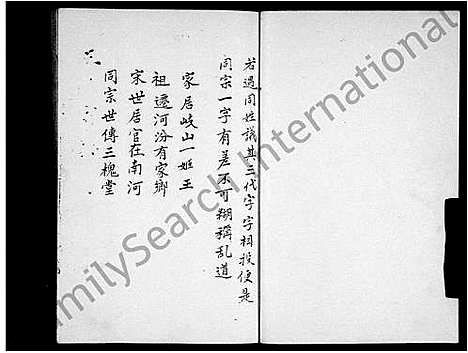 若遇同姓議其三代字字相投便是
同宗一字有差不可糊稱乱道
家居岐山一姬王
祖遷河汾有家鄉
宋世居官在南河
同宗世傳三槐堂
FamilySearch International